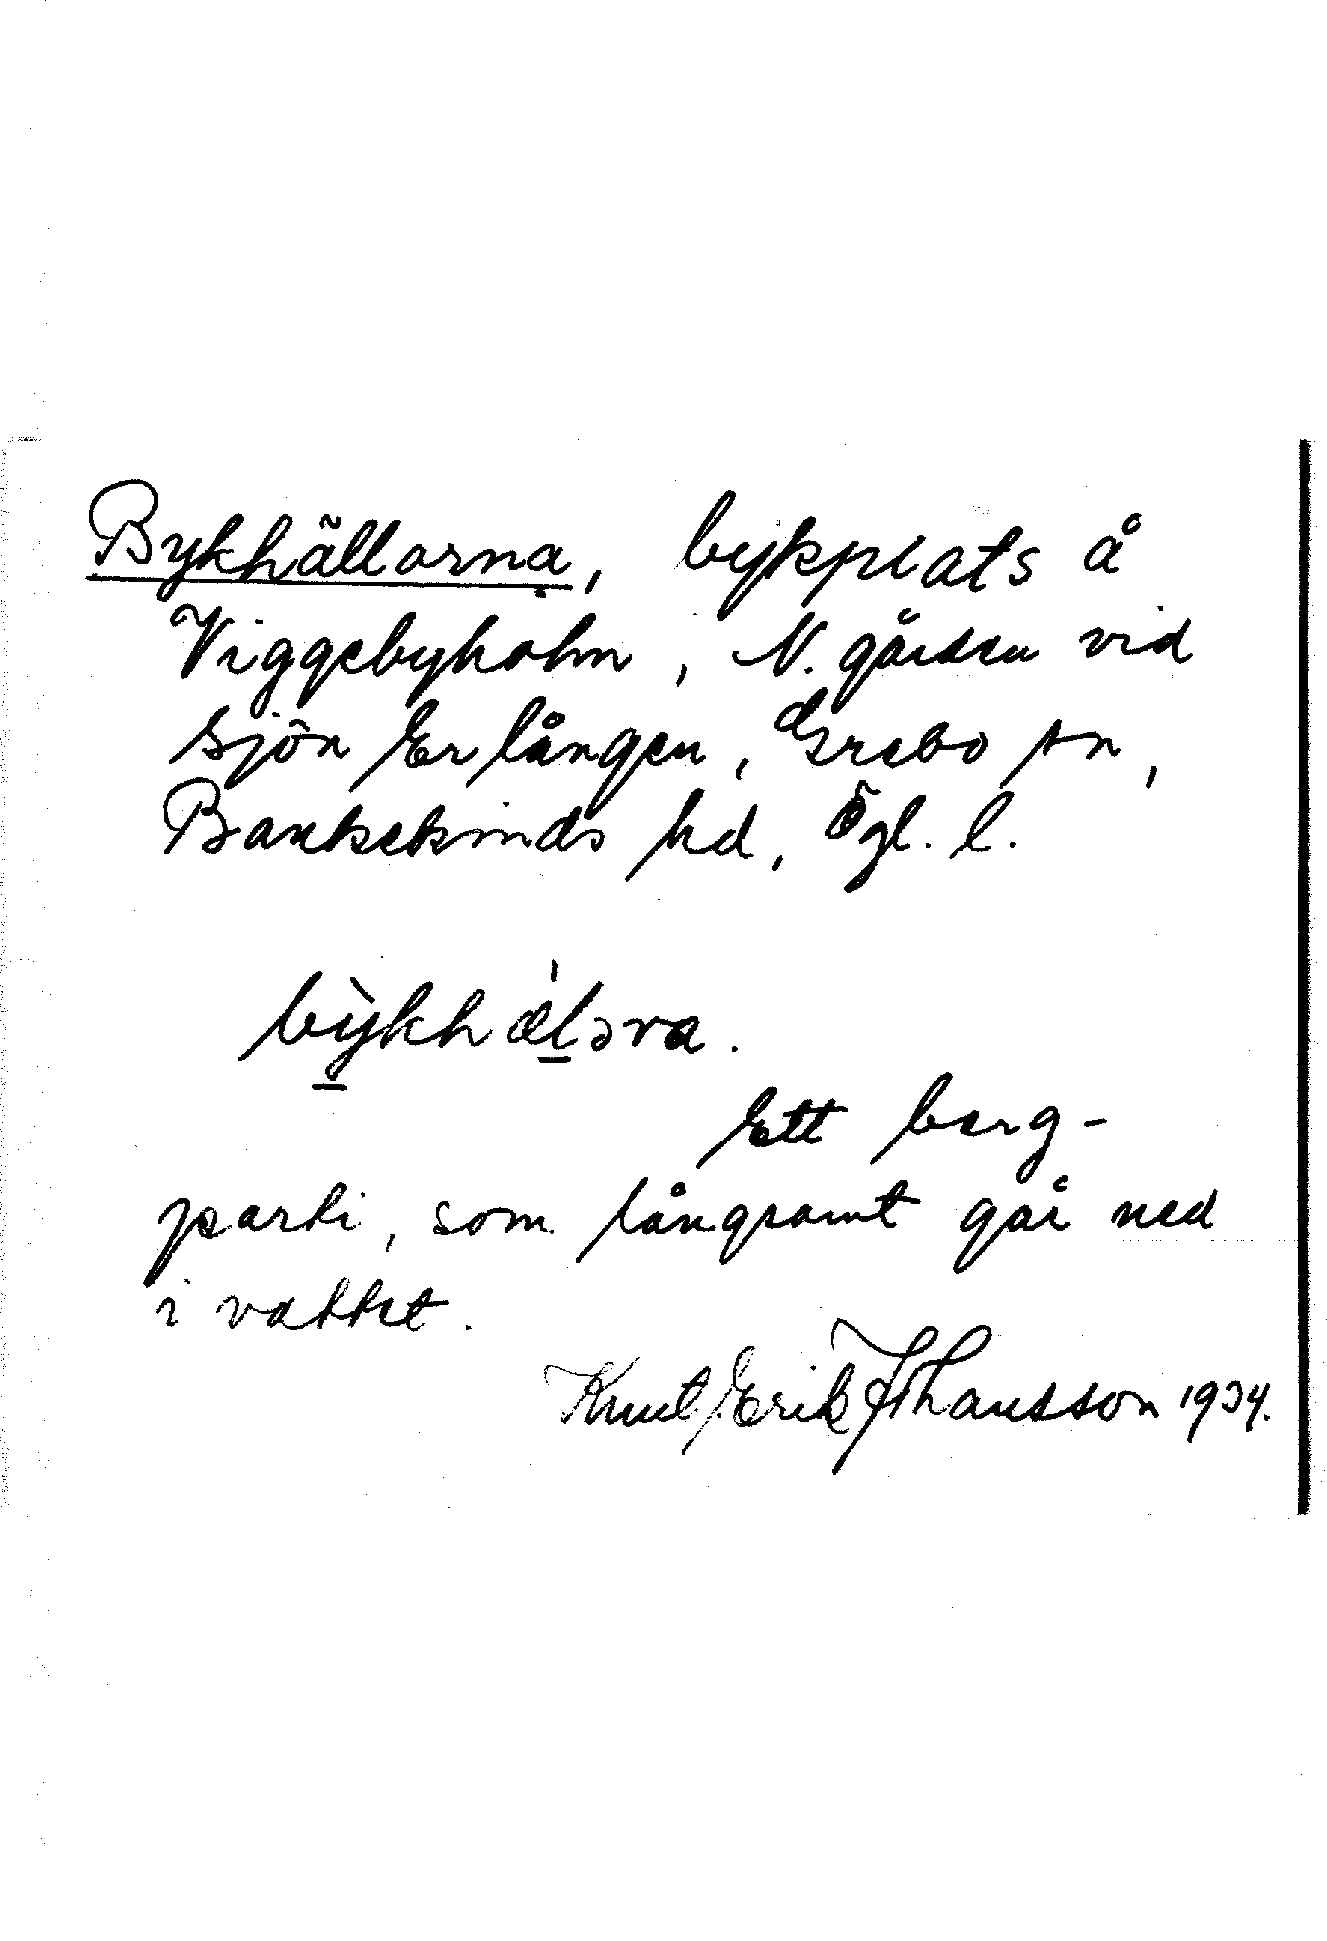 Bykhällorna, bykplats å
Viggebyholm, N. gärden vid
sjön Erlången, Grebo sn,
Bankekinds hd, Ögl. l.
bỳkhǽləra.
Ett berg-
parti, som långsamt går ned
i vattet.
Knut Erik Johansson 1934.